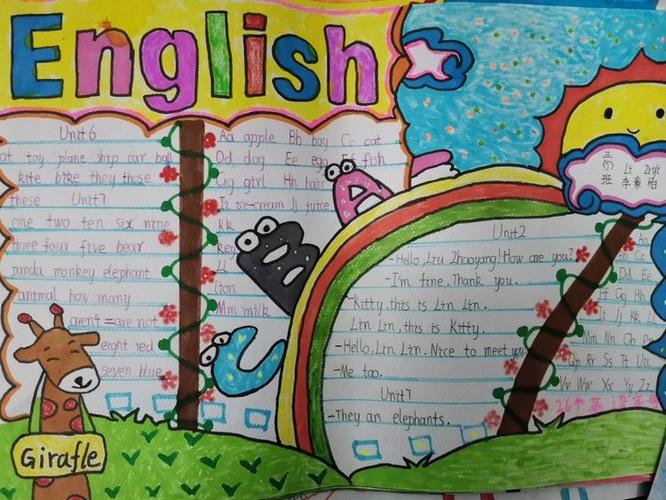 English
Unit 6
at toy plane ship car ball
kite bike they those
these Unit7
one two ten six nine
three four five bear
panda monkey elephant
animal how many
aren't =are not
eight red
seven blue
Girafle
Aa apple Bb boy Cc cat
Dd dog Ee egg Ff fish
Gg girl Hh hair
Ii ice-cream Jj juice
Kk
key
Ll
lion
Mm milk
A
B
C
Unit2
-Hello, Liu Zhaoyang! How are you?
-I'm fine. Thank you.
-Kitty, this is Lin Lin.
Lin Lin, this is Kitty.
-Hello, Lin Lin. Nice to meet you.
-Me too.
Unit7
-They an elephants.
班
Aa
Bb Cc
Dd Ee
Ff Gg Hh
Ii Jj Kk Ll
Mm Nn Oo Pp
Qq Rr Ss Tt Uu
Vv Ww Xx Yy Zz
26个英语字母